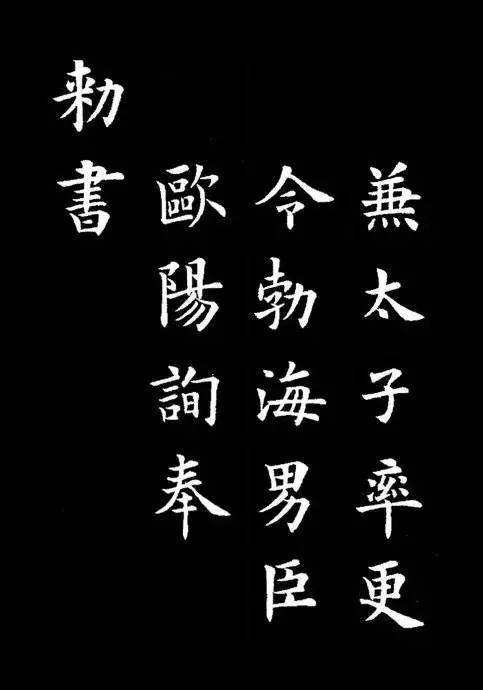 兼太子率更
令勃海男臣
歐陽詢奉
勑書